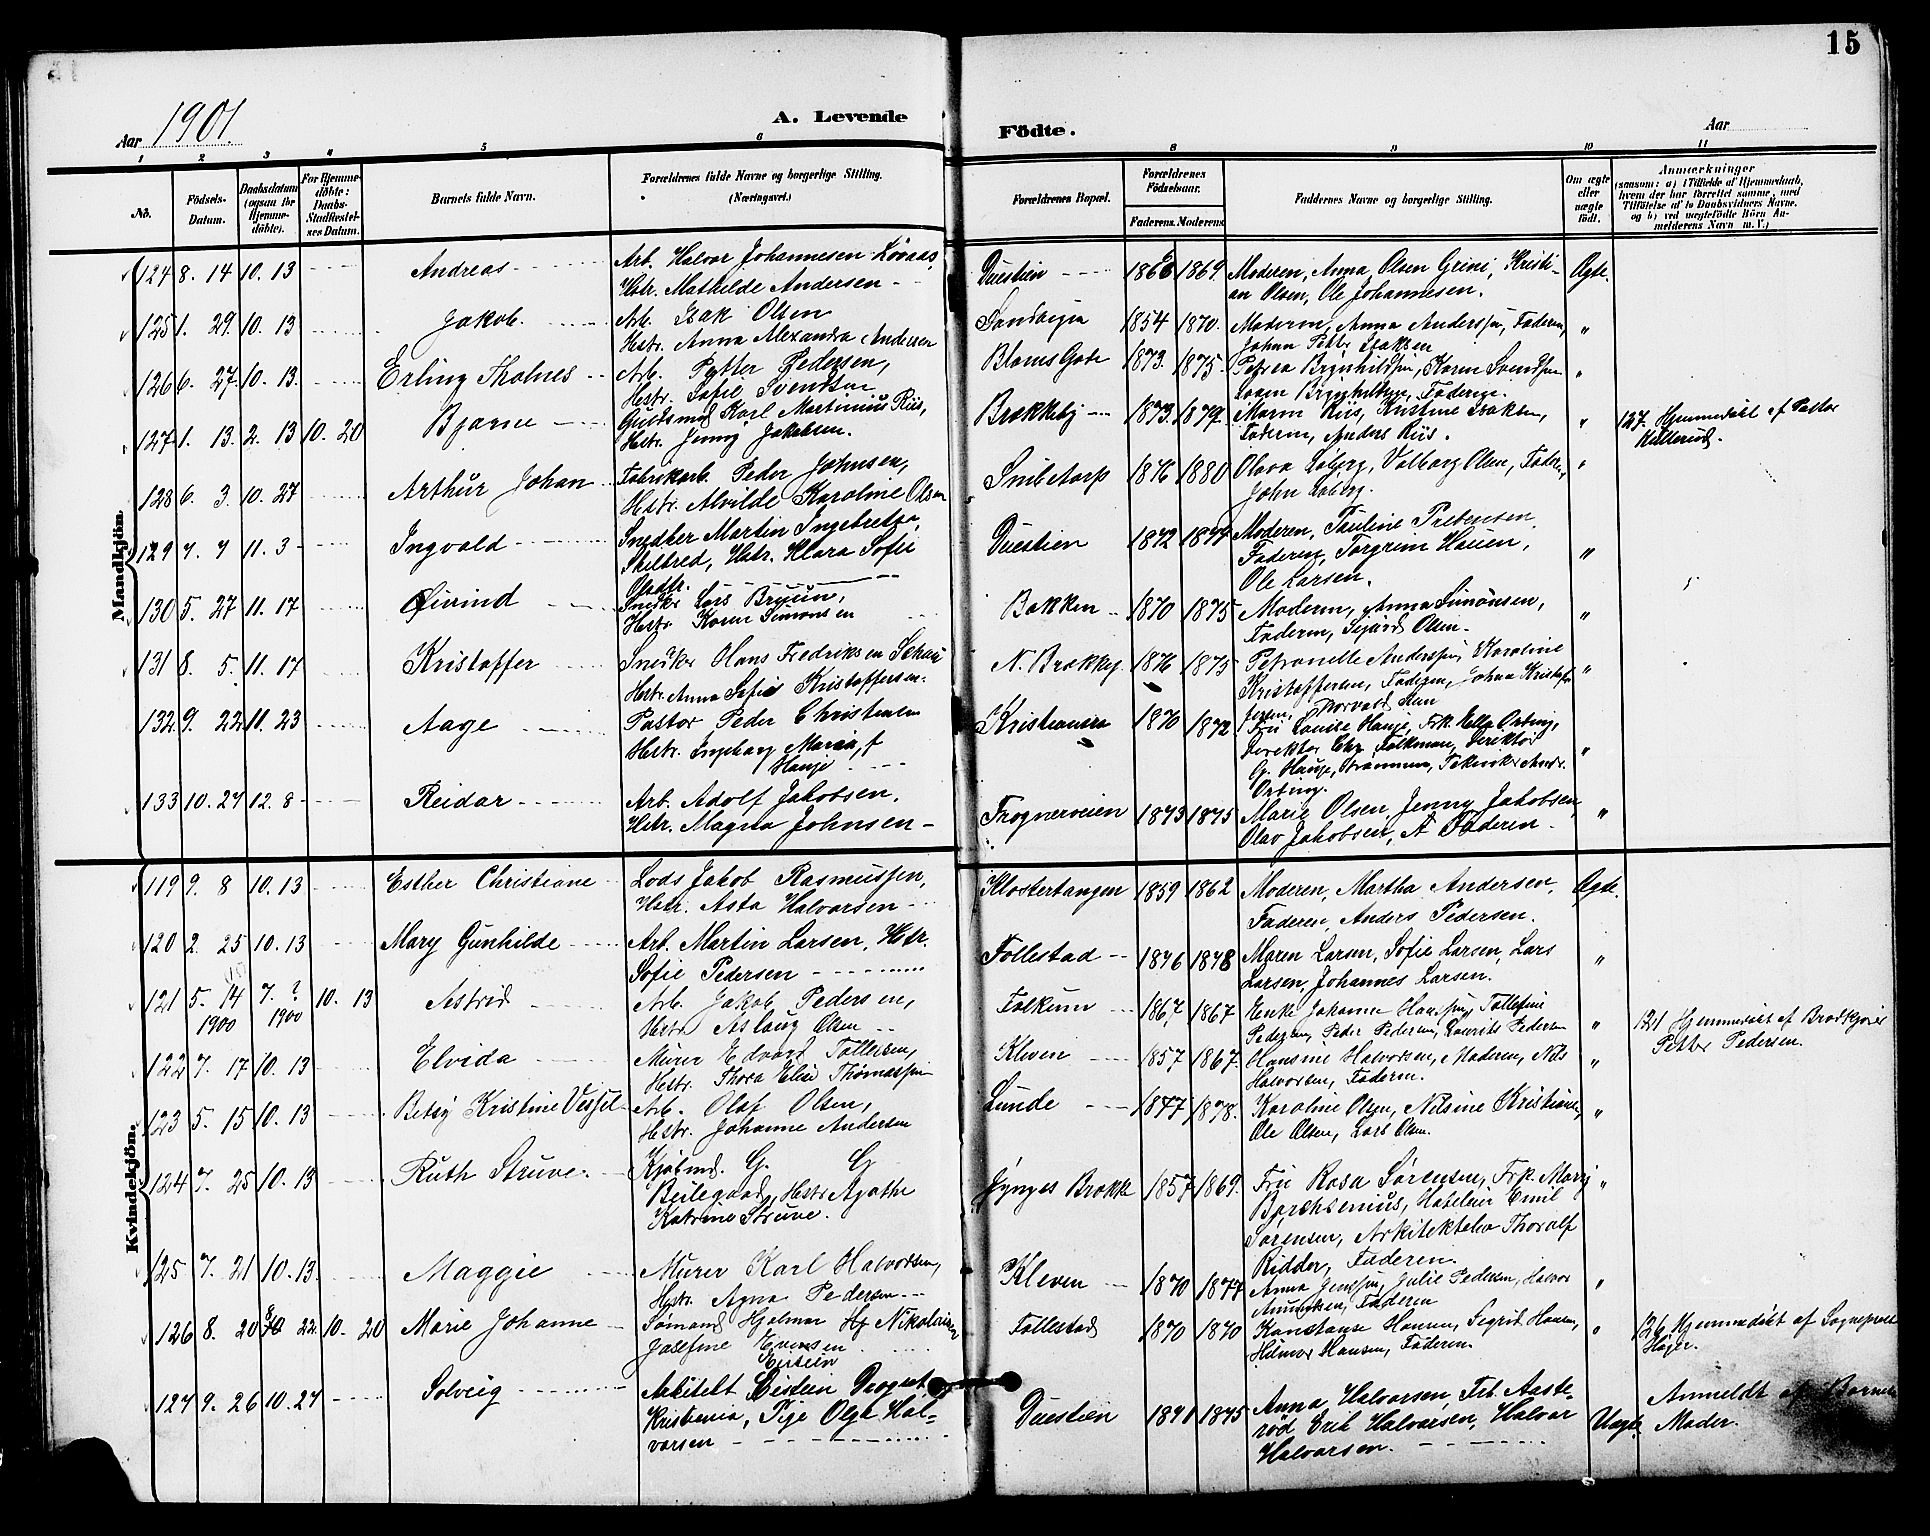 15
Aar 1901.
A. Levende Födte.
Aar
1 2 3 4 5 6 8 9 10 11
No.
Födsels-Datum.
Daabsdatum (ogsaa for Hjemmedöbte).
For Hjemmedöbte: Daabs-Stadfæstelses Datum.
Barnets fulde Navn.
Forældrenes fulde Navne og borgerlige Stilling. (Næringsvei.)
Forældrenes Bopæl.
Forældrenes Födselsaar.
Faderens. Moderens.
Faddernes Navne og borgerlige Stilling.
Om ægte eller uægte född.
Anmærkninger
(saasom: a) i Tilfælde af Hjemmedaab, hvem der har forrettet samme, med Tilföielse af to Daabsvidners Navne, og b) ved uægtefödte Börn Anmelderens Navn m. V.)
Mandkjön.
124 8. 14 10. 13 Andreas Arb. Halvor Johannesen
Hstr. Mathilde Andersen
Duestien 1869. Moderen, Anna Olsen Grini, Kristi-
an Olsen, Ole Johannesen. Ægte.
125 1. 29. 10. 13 Jakob. Arb. Isak Olsen
Hstr. Anna Alexandra Andersen
1854 1870. Moderen, Anna Anderssen, Faderen,
Johan Petter Isaksen "
126 6. 27. 10. 13. Erling Arb. Petter Pedersen,
Hstr. Sofie Svendsen
Bloms Gade 1873. 1875. Petrea Karen Svendsen
Faderen. "
127 1. 13. 2. 13 10. 20 Bjarne Karl Martinius Riis,
Hstr. Jenny Jakobsen.
Brækkeby 1873. 1879. Maren Riis, Kristine Isaksen,
Faderen, Anders Riis. "
127. Hjemmedöbt af Pastor
128 6. 3. 10. 27 Arthur Johan Fabrikarb. Peder Johnsen,
Hstr. Alvilde Karoline Olsen
Snibetorp 1876 1880 Valborg Olsen, Faderen,
John
129 7. 7 11. 3 Ingvald Snedker Martin Ingebretsen
Hstr. Klara Sofie
Duestien 1872 Moderen, Pauline Prebensen
Faderen, Torgrim
Ole Larsen. "
130 5. 27 11. 17 Øivind Snedkr. Lars Bruun,
Hstr. Karen Simonsen
Bakken 1870 1875 Moderen, Anna Simonsen,
Faderen, Sigurd Olsen. "
131 8. 5. 11. 17 Kristoffer Snedkr Hans Fredriksen
Hstr. Anna Sofie Kristoffersen.
N. Brækkeby. 1876 1875 Petronelle Anderssen, Karoline
Kristoffersen, Faderen, Johan Kristof-
fersen, Thorvald "
132 9. 22 11. 23 Aage Pastor Peder Christensen
Hstr. Ingeborg Maria f.
Hauge
Kristiansen 1870 1872 Fru Louise Hauge, Frk. Ella Orbing,
Direktør Chr. Direktør
G. Hauge,
Orbing. "
133 10. 27 12. 8 Reidar Arb. Adolf Jakobsen.
Hstr. Magna Johnsen
Frognerveien 1873 1875 Marie Olsen, Jenny Jakobsen,
Olav Jakobsen, A Faderen. "
Kvindekjön.
119 9. 8 10. 13 Esther Christiane Lods Jakob Rasmussen,
Hstr. Asta Halvorsen
Klostertangen 1859 1862 Moderen, Martha Andersen,
Faderen, Anders Pedersen. Ægte.
120 2. 25 10. 13 Mary Gunhilde Arb. Martin Larsen, Hstr.
Sofie Pedersen
Follestad 1876 1878 Maren Larsen, Sofie Larsen, Lars
Larsen, Johannes Larsen. "
121 5. 14 1900 7. ? 1900 10. 13 Astrid Arb. Jakob Pedersen,
Hstr. Aslaug Olsen
Falkum 1867 1867 Enke Johanne Hanssen, Tollefine
Pedersen, Peder Pedersen, Laurits Pedersen "
121 Hjemmedöbt af
Petter Pedersen.
122 7. 17 10. 13 Elvida Murer Edvart Tollefsen,
Hstr. Thora Elise Thomassen
Kleven 1857 1867. Hansine Halvorsen, Moderen, Nils
Halvorsen, Faderen. "
123 5. 15 10. 13 Betsy Kristine Arb. Olaf Olsen,
Hstr. Johanne Andersen
Lunde 1877 1878. Karoline Olsen, Nilsine Kristiansen,
Ole Olsen, Lars Olsen. "
124 7. 25 10. 13 Ruth Struve. Kjøbmd. G. G
Beilegaard, Hstr Agathe
Katrine Struve.
Jynges Brække 1857 1869. Fru Rosa Sørensen, Frk. Mary
Borchsenius, Hoteleier Emil
Sørensen, Arkitektelev Thoralf
Ridder, Faderen. "
125 7. 21 10. 13 Maggie Murer Karl Halvorsen,
Hstr. Agna Pedersen
Kleven 1870 1877 Anna Jenssen, Julie Pedersen, Halvor
Amundsen, Faderen "
126 8. 20 8 22 10. 20 Marie Johanne Sømand Hjalmar Hj Nikolaisen
Josefine Evensen
Follestad 1870 1870 Konstanse Hansen, Sigrid Hansen,
Hilmar Hansen, Faderen. "
126. Hjemmedöbt af Sognepræst
Høyer.
127 9. 26 10. 27 Solveig Arkitekt Eistein
Kristiania, Pige Olga Hal-
vorsen
Duestien 1871 1875 Anna Halvorsen, Frk. Aaste-
rød Erik Halvorsen, Halvor
Halvorsen. Uægte.
Anmeldt af Barnets
Moder.